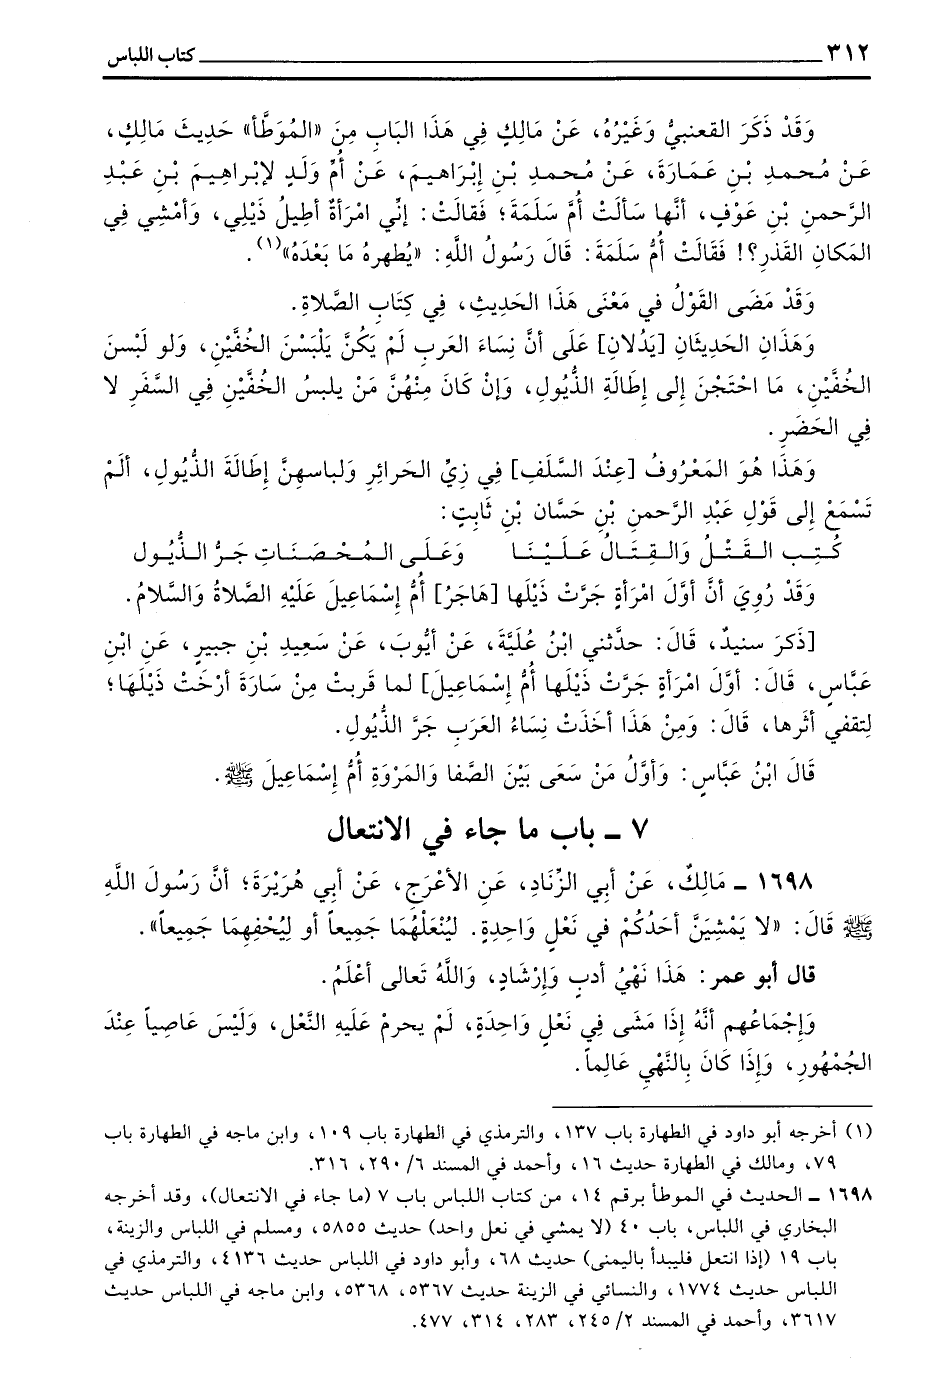 ٣١٢ كتاب اللباس
وَقَدْ ذَكَرَ القعنبيُّ وَغَيْرُهُ، عَنْ مَالِكٍ فِي هَذَا البَابِ مِنَ «المُوَطَّأ» حَدِيثَ مَالِكٍ،
عَنْ مُحمدِ بْنِ عَمَارَةَ، عَنْ مُحمدِ بْنِ إبْرَاهيمَ، عَنْ أُمِّ وَلَدٍ لإبْرَاهِيمَ بْنِ عَبْدِ
الرَّحمنِ بْنِ عَوْفٍ، أنَّها سَألَتْ أُمَّ سَلَمَةَ؛ فَقالَتْ: إنِّي امْرَأةٌ أطِيلُ ذَيْلِي، وَأمْشِي فِي
المَكانِ القَذرِ؟! فَقَالَتْ أُمُّ سَلَمَةَ: قَالَ رَسُولُ اللَّهِ: «يُطهرهُ مَا بَعْدَهُ»(١).
وَقَدْ مَضَى القَوْلُ في مَعْنَى هَذَا الحَدِيثِ، فِي كِتَابِ الصَّلاةِ.
وَهَذَانِ الحَدِيثَانِ [يَدُلانِ] عَلَى أنَّ نِسَاءَ العَرَبِ لَمْ يَكُنَّ يَلْبَسْنَ الخُفَّيْنِ، وَلو لَبْسنَ
الخُفَّيْنِ، مَا احْتَجْنَ إلى إطَالَةِ الذُّيُولِ، وَإنْ كَانَ مِنْهُنَّ مَنْ يلبسُ الخُفَّيْنِ فِي السَّفَرِ لا
فِي الحَضَرِ.
وَهَذَا هُوَ المَعْرُوفُ [عِنْدَ السَّلَفِ] فِي زِيِّ الحَرائرِ وَلباسهنَّ إطَالَةَ الذُّيُولِ، ألَمْ
تَسْمَعْ إلى قَوْلِ عَبْدِ الرَّحمنِ بْنِ حَسَّان بْنِ ثَابِتٍ:
كُتِبَ القَتْلُ وَالقِتَالُ عَلَيْنَا وَعَلَى المُحْصَنَاتِ جَرُّ الذُّيُول
وَقَدْ رُوِيَ أنَّ أوَّلَ امْرَأةٍ جَرَّتْ ذَيْلَها [هَاجَرُ] أُمُّ إسْمَاعِيلَ عَلَيْهِ الصَّلاةُ وَالسَّلامُ.
[ذَكرَ سنيدٌ، قَالَ: حدَّثني ابْنُ عُلَيَّةَ، عَنْ أيُّوبَ، عَنْ سَعِيدِ بْنِ جبيرٍ، عَنِ ابْنِ
عَبَّاسٍ، قَالَ: أوَّلَ امْرَأةٍ جَرَّتْ ذَيْلَها أُمُّ إسْمَاعِيلَ] لما قربتْ مِنْ سَارَةَ أرْخَتْ ذَيْلَهَا؛
لِتقفي أثَرها، قَالَ: وَمِنْ هَذَا أخَذَتْ نِسَاءُ العَرَبِ جَرَّ الذُّيُولِ.
قَالَ ابْنُ عَبَّاسٍ: وَأوَّلُ مَنْ سَعَى بَيْنَ الصَّفا وَالمَرْوَةِ أُمُّ إسْمَاعِيلَ ﷺ.
٧ ـ باب ما جاء في الانتعال
١٦٩٨ ـ مَالِكٌ، عَنْ أبي الزِّنَادِ، عَنِ الأعْرَجِ، عَنْ أبي هُرَيْرَةَ؛ أنَّ رَسُولَ اللَّهِ
ﷺ قَالَ: «لا يَمْشِيَنَّ أحَدُكُمْ في نَعْلٍ وَاحِدَةٍ. لِيُنْعَلْهُمَا جَمِيعاً أو لِيُحْفِهِمَا جَمِيعاً».
قال أبو عمر: هَذَا نَهْيُ أدبٍ وَإرْشَادٍ، وَاللَّهُ تَعالى أعْلَمُ.
وَإجْمَاعُهم أنَّهُ إذَا مَشَى فِي نَعْلٍ وَاحِدَةٍ، لَمْ يحرمْ عَلَيهِ النَّعْل، وَلَيْسَ عَاصِياً عِنْدَ
الجُمْهُورِ، وَإذَا كَانَ بِالنَّهْي عَالِماً.
(١) أخرجه أبو داود في الطهارة باب ١٣٧، والترمذي في الطهارة باب ١٠٩، وابن ماجه في الطهارة باب
٧٩، ومالك في الطهارة حديث ١٦، وأحمد في المسند ٦/ ٢٩٠، ٣١٦.
١٦٩٨ ـ الحديث في الموطأ برقم ١٤، من كتاب اللباس باب ٧ (ما جاء في الانتعال)، وقد أخرجه
البخاري في اللباس، باب ٤٠ (لا يمشي في نعل واحد) حديث ٥٨٥٥، ومسلم في اللباس والزينة،
باب ١٩ (إذا انتعل فليبدأ باليمنى) حديث ٦٨، وأبو داود في اللباس حديث ٤١٣٦، والترمذي في
اللباس حديث ١٧٧٤، والنسائي في الزينة حديث ٥٣٦٧، ٥٣٦٨، وابن ماجه في اللباس حديث
٣٦١٧، وأحمد في المسند ٢/ ٢٤٥، ٢٨٣، ٣١٤، ٤٧٧.